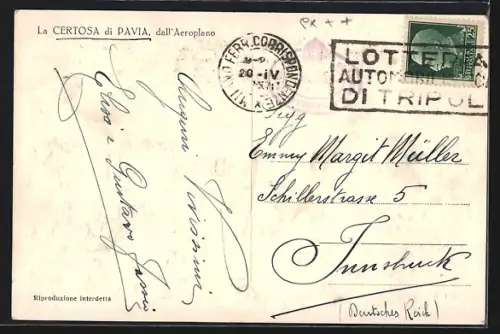 La CERTOSA di PAVIA, dall'Aeroplano
FERR. CORRISPOND
20·IV
LOTTERIA
AUTOMOBILISTICA
DI TRIPOLI
25
Auguri Vivissimi
Emmy Margit Müller
Schillerstrasse 5
Innsbruck
(Deutsches Reich)
Gustavo
Riproduzione interdetta